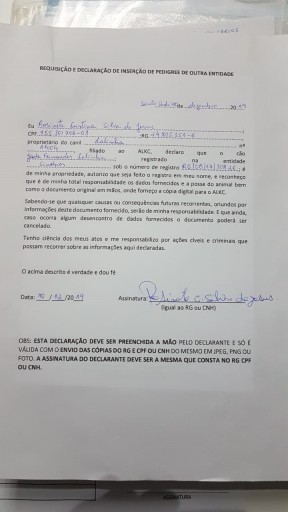 REQUISIÇÃO E DECLARAÇÃO DE INSERÇÃO DE PEDIGREE DE OUTRA ENTIDADE
de dezembro 2019
Eu
CPF RG
proprietário do canil nº
filiado ao ALKC, declaro que o cão
registrado na entidade
sob o número de registro ; é
de minha propriedade, autorizo que seja feito o registro em meu nome, e reconheço
que é de minha total responsabilidade os dados fornecidos e a posse do animal bem
como o documento original em mãos, onde forneço a cópia digital para o ALKC.
Sabendo-se que quaisquer causas ou consequências futuras recorrentes, oriundos por
informações deste documento fornecido, serão de minha responsabilidade. E que ainda,
caso ocorra algum desencontro de dados fornecidos o documento poderá ser
cancelado.
Tenho ciência dos meus atos e me responsabilizo por ações cíveis e criminais que
possam recorrer sobre as informações aqui declaradas.
O acima descrito é verdade e dou fé
Data: /12/2019 Assinatura:
(igual ao RG ou CNH)
OBS: ESTA DECLARAÇÃO DEVE SER PREENCHIDA A MÃO PELO DECLARANTE E SÓ É
VÁLIDA COM O ENVIO DAS CÓPIAS DO RG E CPF OU CNH DO MESMO EM JPEG, PNG OU
FOTO. A ASSINATURA DO DECLARANTE DEVE SER A MESMA QUE CONSTA NO RG CPF
OU CNH.
ASSINATURA